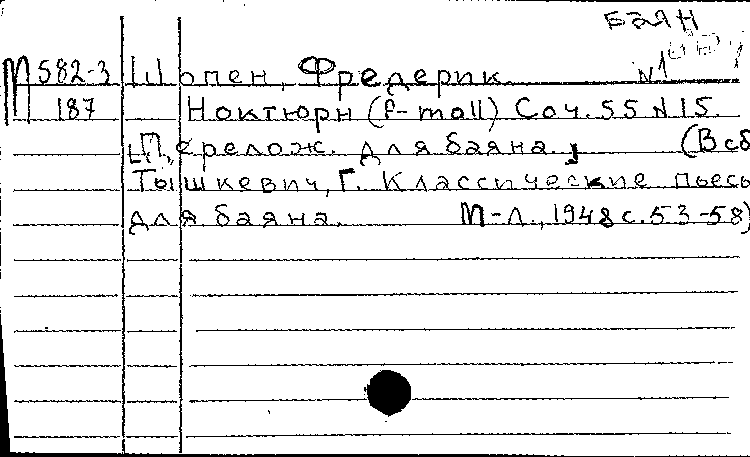 БАЯН
М 582-3 Шопен, Фредерик. №1
187 Ноктюрн (f-moll) Соч. 55 N 15.
[Перелож. для баяна.] (В сб
Тышкевич, Г. Классические пьесы
для баяна. М-Л., 1948 с. 53-58)